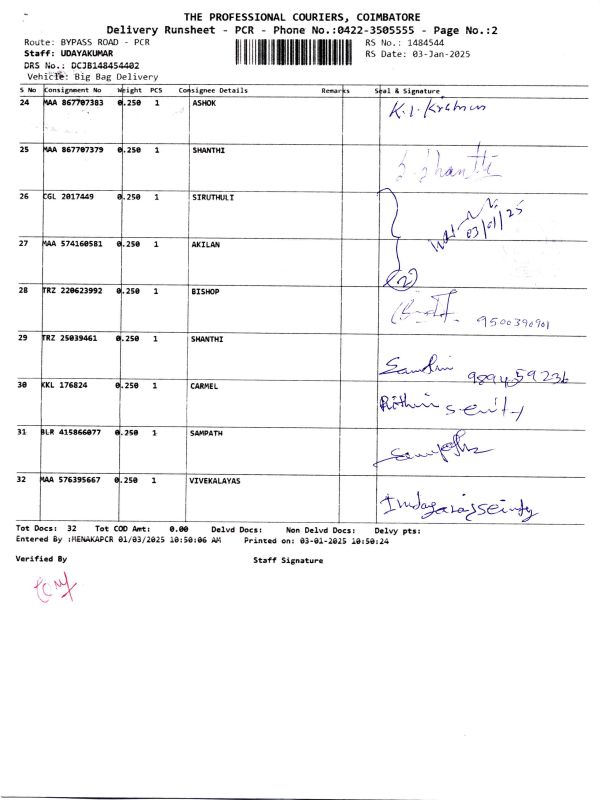 THE PROFESSIONAL COURIERS, COIMBATORE
Delivery Runsheet - PCR - Phone No.:0422-3505555 - Page No.:2
Route: BYPASS ROAD - PCR RS No.: 1484544
Staff: UDAYAKUMAR RS Date: 03-Jan-2025
DRS No.: DCJB148454402
Vehicle: Big Bag Delivery
S No Consignment No Weight PCS Consignee Details Remarks Seal & Signature
24 MAA 867707383 0.250 1 ASHOK K.I.Krishnan
25 MAA 867707379 0.250 1 SHANTHI S.Shanthi
26 CGL 2017449 0.250 1 SIRUTHULI
03/01/25
27 MAA 574160581 0.250 1 AKILAN
(2)
28 TRZ 220623992 0.250 1 BISHOP 9500390901
29 TRZ 25039461 0.250 1 SHANTHI 9894559236
30 KKL 176824 0.250 1 CARMEL
31 BLR 415866077 0.250 1 SAMPATH
32 MAA 576395667 0.250 1 VIVEKALAYAS
Tot Docs: 32 Tot COD Amt: 0.00 Delvd Docs: Non Delvd Docs: Delvy pts:
Entered By :MENAKAPCR 01/03/2025 10:50:06 AM Printed on: 03-01-2025 10:50:24
Verified By Staff Signature